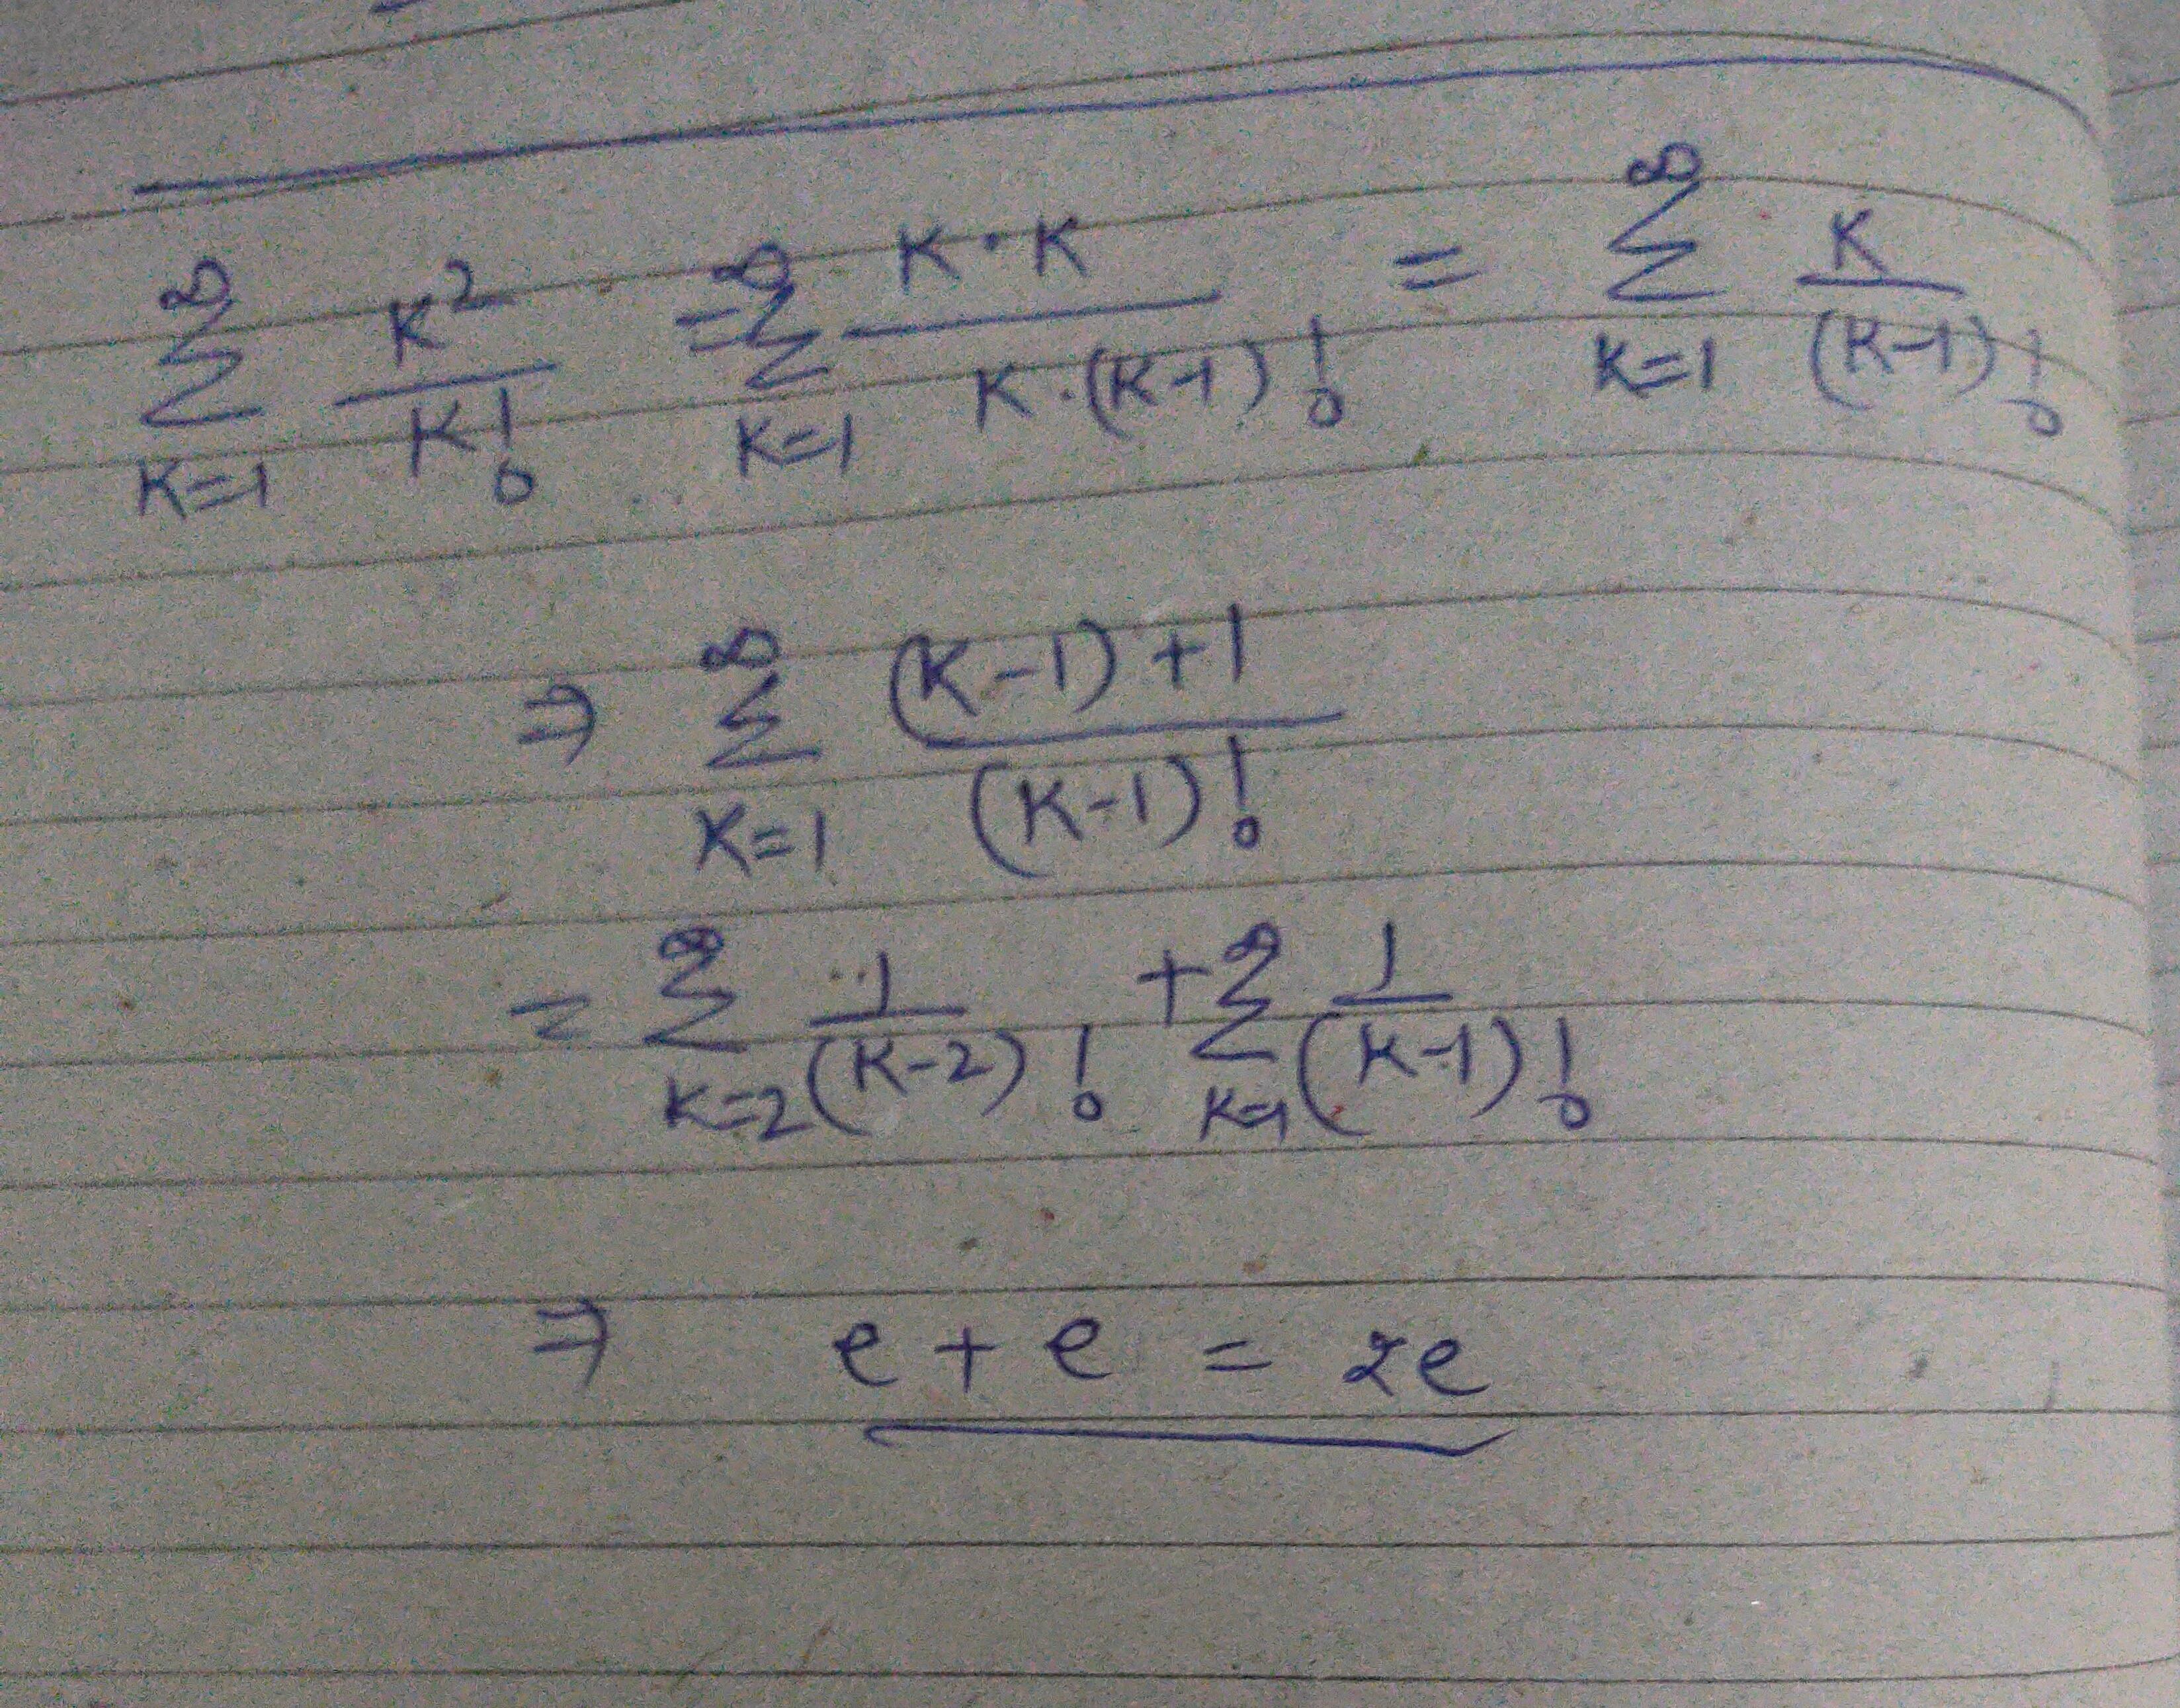 ∞∑K=1 K²/K! = ∞∑K=1 K·K/K·(K-1)! = ∞∑K=1 K/(K-1)!
⇒ ∞∑K=1 (K-1)+1/(K-1)!
= ∞∑K=2 1/(K-2)! + ∞∑K=1 1/(K-1)!
⇒ e + e = 2e